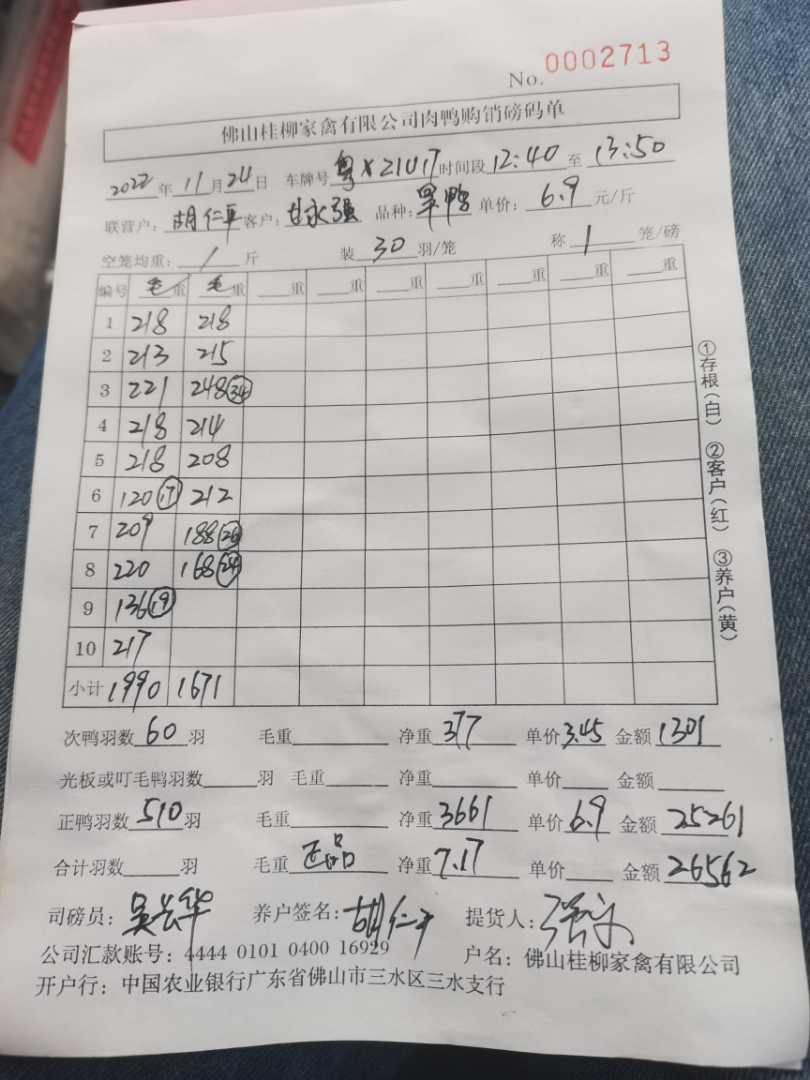 No. 0002713
佛山桂柳家禽有限公司肉鸭购销磅码单
2022年11月24日 车牌号粤X21U17时间段12:40至13:50
联营户：胡仁平客户：甘永强 品种：旱鸭 单价：6.9元/斤
空笼均重：/斤 装30羽/笼 称1笼/磅
编号 毛重 毛重 重 重 重 重 重 重
1 218 218
2 213 215
3 221 248(34)
4 218 214
5 218 208
6 120(17) 212
7 209 188(26)
8 220 168(24)
9 136(19)
10 217
小计 1990 1671
①存根(白) ②客户(红) ③养户(黄)
次鸭羽数60羽 毛重 净重377 单价3.45 金额1301
光板或叮毛鸭羽数 羽 毛重 净重 单价 金额
正鸭羽数510羽 毛重 净重3661 单价6.9 金额25261
合计羽数 羽 毛重正品 净重7.17 单价 金额26562
司磅员： 养户签名：胡仁平 提货人：
公司汇款账号：4444 0101 0400 16929 户名：佛山桂柳家禽有限公司
开户行：中国农业银行广东省佛山市三水区三水支行